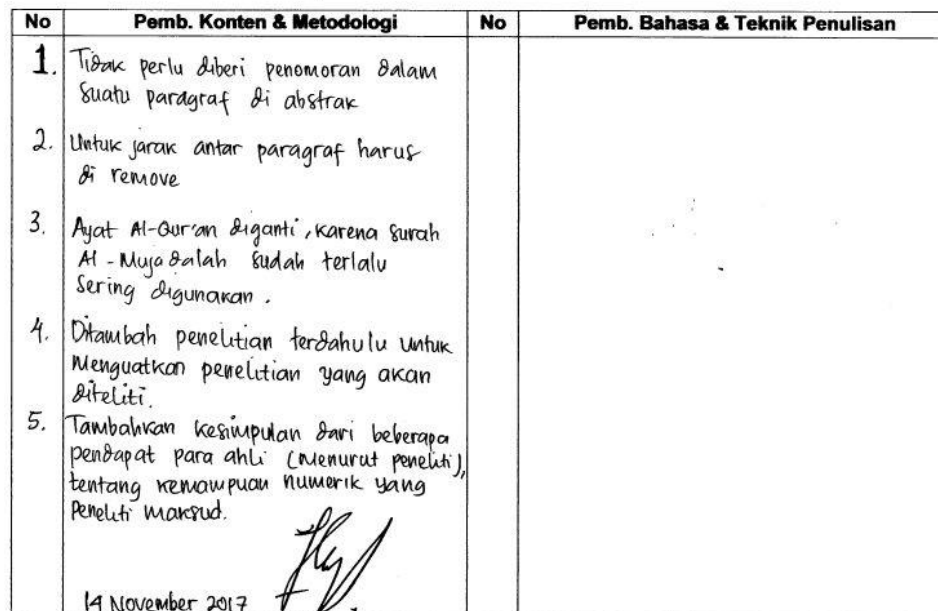 No Pemb. Konten & Metodologi No Pemb. Bahasa & Teknik Penulisan
1. Tidak perlu diberi penomoran dalam
suatu paragraf di abstrak
2. Untuk jarak antar paragraf harus
di remove
3. Ayat Al-Qur'an diganti, karena surah
Al-Mujadalah sudah terlalu
sering digunakan.
4. Ditambah penelitian terdahulu untuk
Menguatkan penelitian yang akan
diteliti.
5. Tambahkan kesimpulan dari beberapa
pendapat para ahli (menurut peneliti),
tentang kemampuan numerik yang
peneliti maksud.
14 November 2017